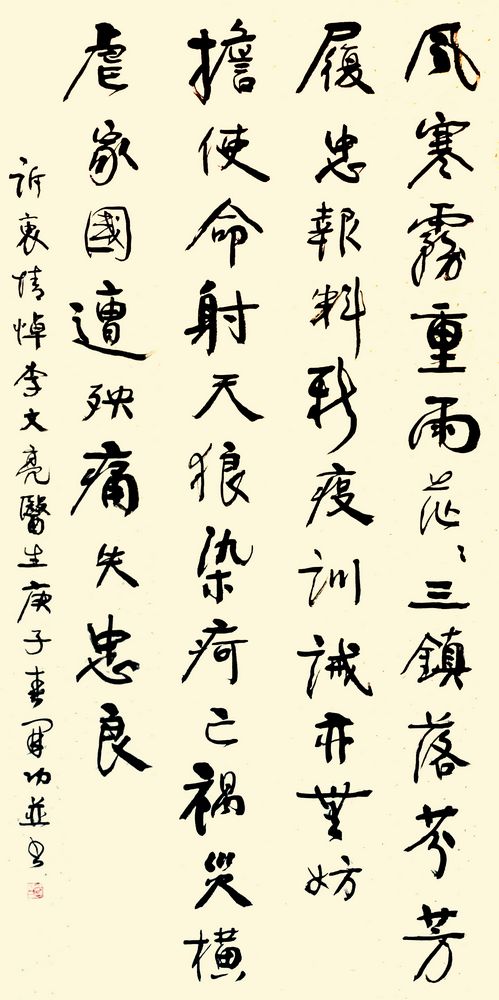 風寒霧重雨茫〻三鎮落芬芳
履忠報料新疫訓誡亦無妨
擔使命射天狼染疴亡禍災橫
虐家國遭殃痛失忠良
訴衷情悼李文亮醫生庚子春功並書